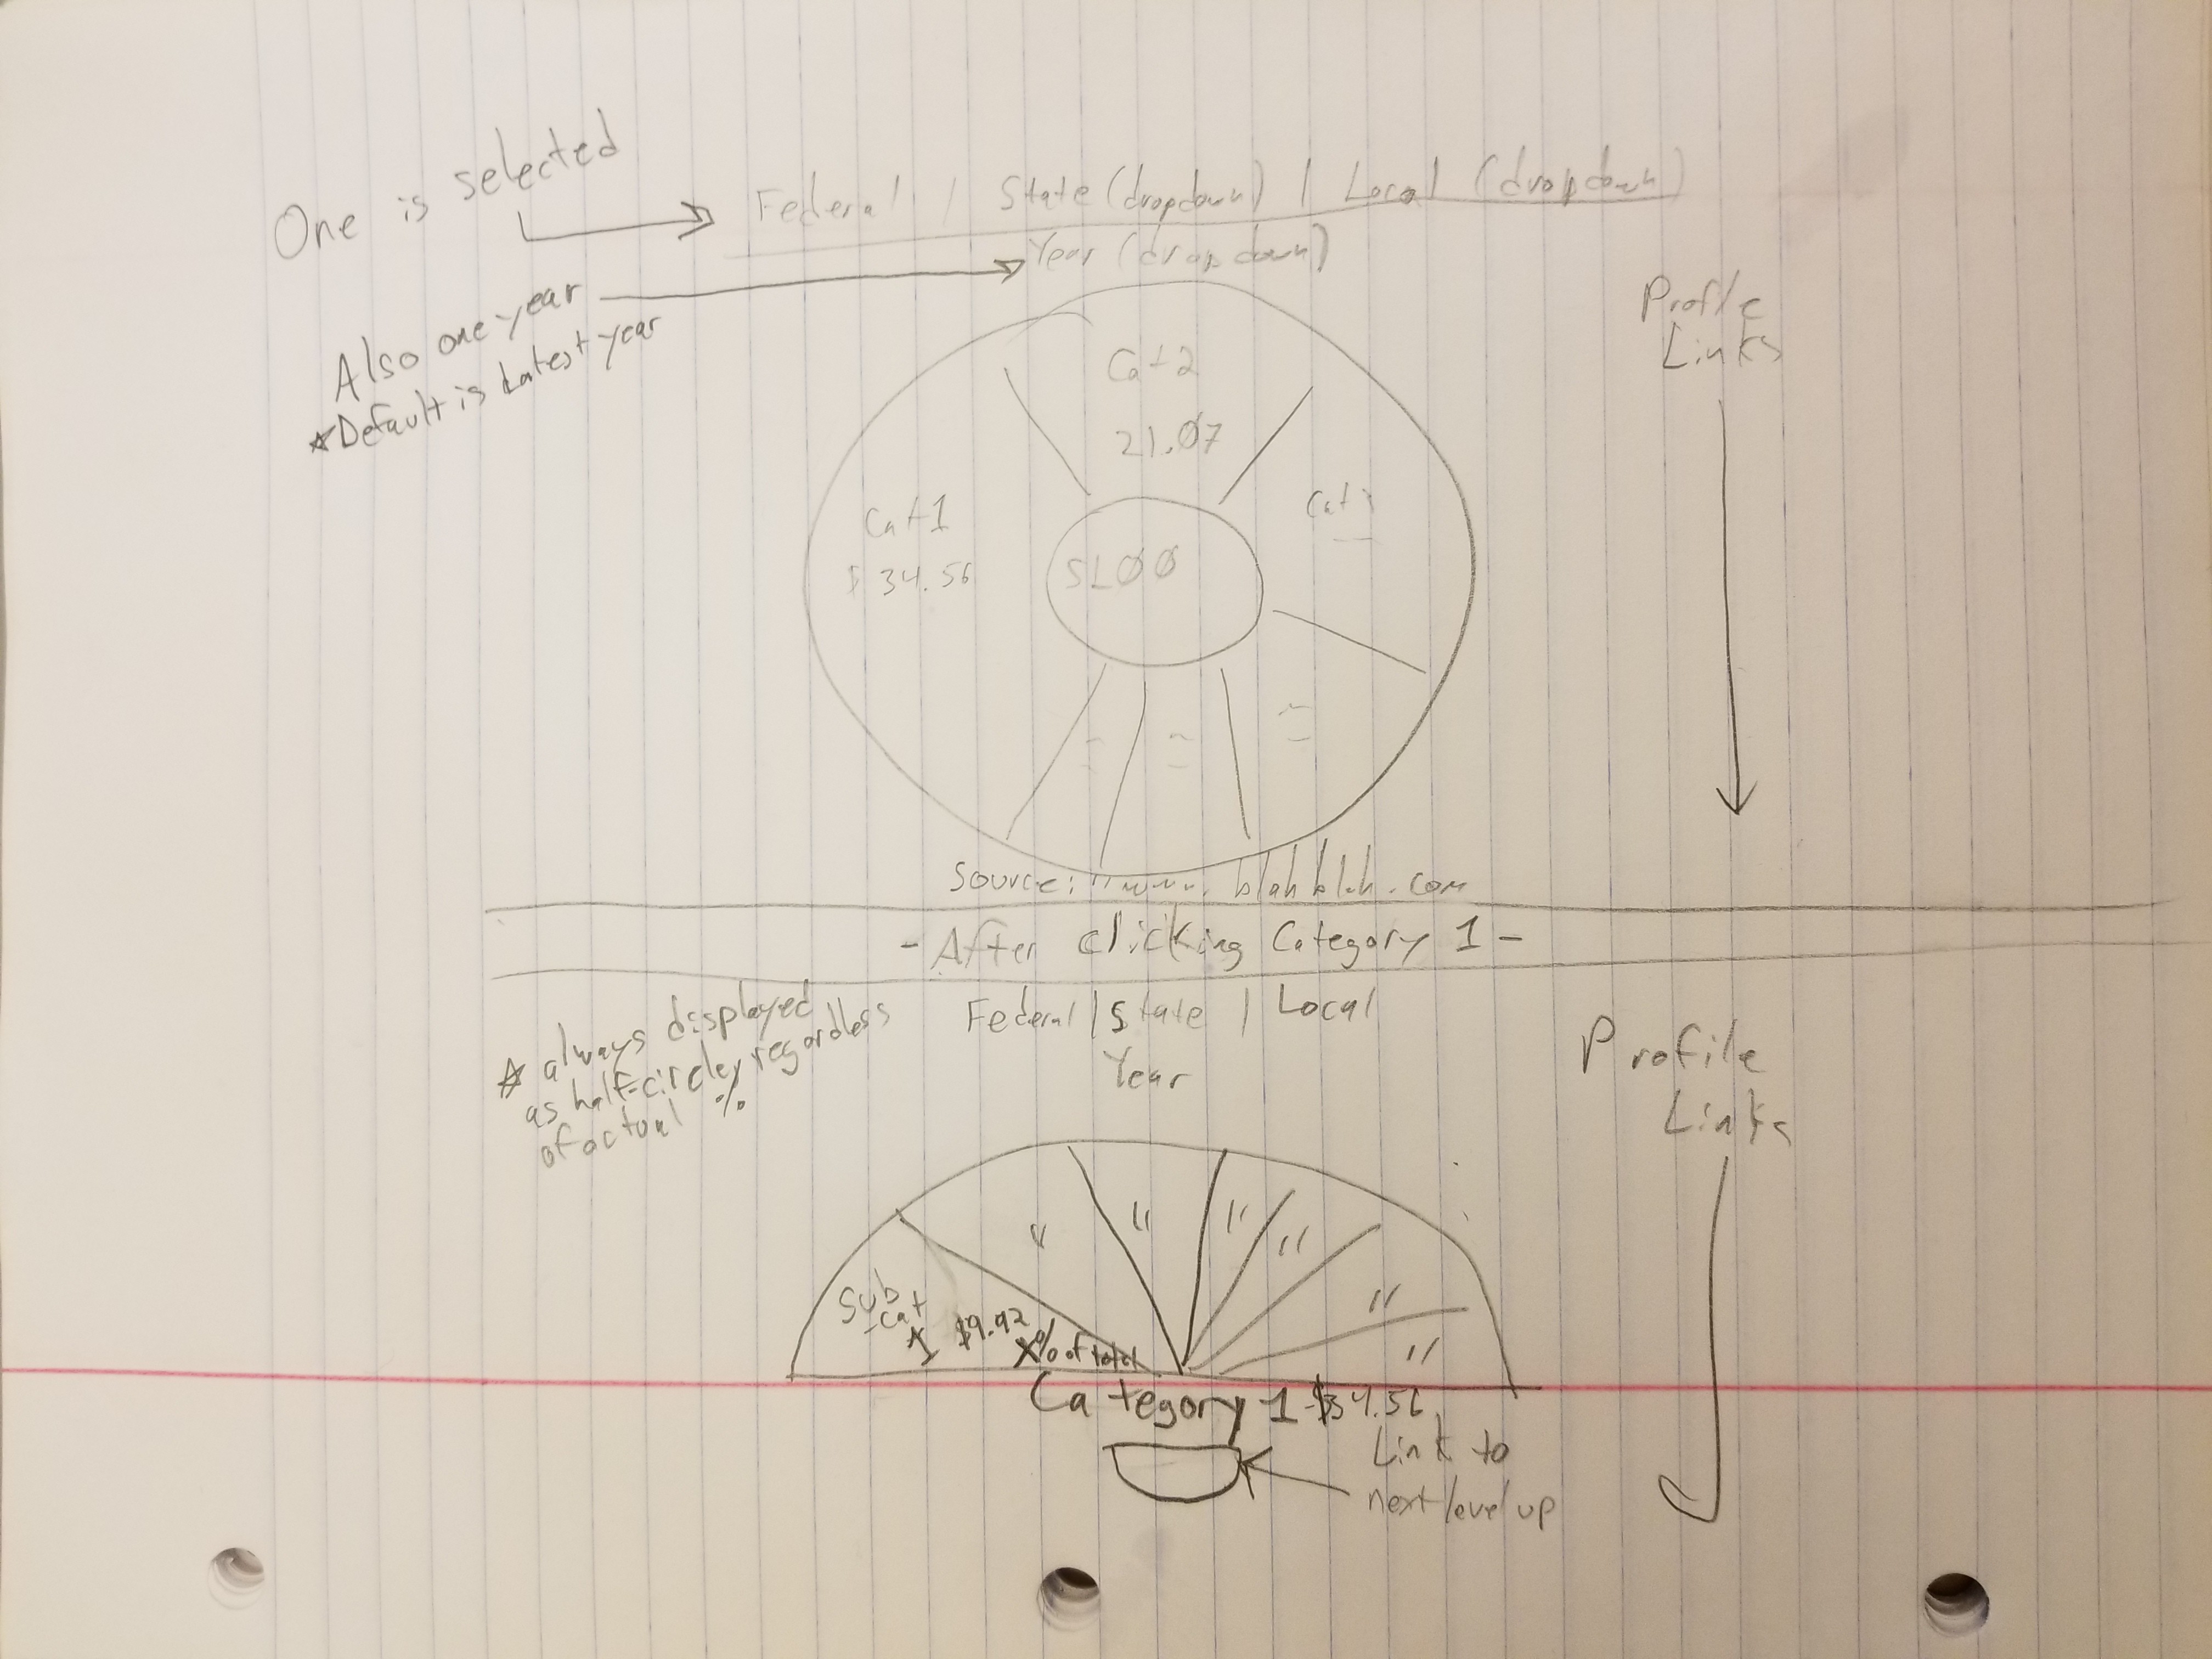 One is selected
Federal | State (dropdown) | Local (dropdown)
Year (dropdown)
Also one year
*Default is Latest year
Profile
Links
Cat 2
21.07
Cat 1
$ 34.56
$100
Cat
Source: "www. blahblah.com
- After clicking Category 1 -
* always displayed
as half-circle, regardless
of actual %
Federal | State | Local
Year
Profile
Links
" " " " " "
Sub
-cat
1 $9.92
X% of total
Category 1 - $34.56
Link to
next level up